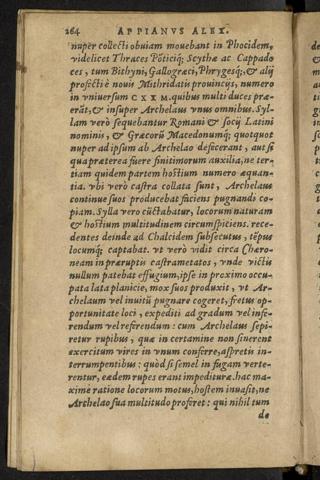 264 APPIANVS ALEX.
nuper collecti obuiam mouebant in Phocidem,
videlicet Thraces Põticiq; Scythæ ac Cappado
ces, tum Bithyni, Gallogræci, Phrygesq;, & alij
profecti è nouis Mithridatis prouincijs, numero
in vniuersum CXXM. quibus multi duces præ-
erãt, & insuper Archelaus vnus omnibus. Syl-
lam verò sequebantur Romani & socij Latini
nominis, & Græcorũ Macedonumq; quotquot
nuper ad ipsum ab Archelao defecerant, aut si
qua præterea fuere finitimorum auxilia, ne ter-
tiam quidem partem hostium numero æquan-
tia. vbi verò castra collata sunt, Archelaus
continue suos producebat faciens pugnandi co-
piam. Sylla vero cũctabatur, locorum naturam
& hostium multitudinem circumspiciens. rece-
dentes deinde ad Chalcidem subsecutus, tẽpus
locumq; captabat. vt verò vidit circa Chæro-
neam in præruptis castrametatos, vnde victis
nullum patebat effugium, ipse in proximo occu-
pata lata planicie, mox suos produxit, vt Ar-
chelaum vel inuitũ pugnare cogeret, fretus op-
portunitate loci, expediti ad gradum vel infe-
rendum vel referendum: cum Archelaus sepi-
retur rupibus, quæ in certamine non sinerent
exercitum vires in vnum conferre, aspretis in-
terrumpentibus: quòd si semel in fugam verte-
rentur, eædem rupes erant impedituræ. hac ma-
xime ratione locorum motus, hostem inuasit, ne
Archelao sua multitudo prosiret: qui nihil tum
de